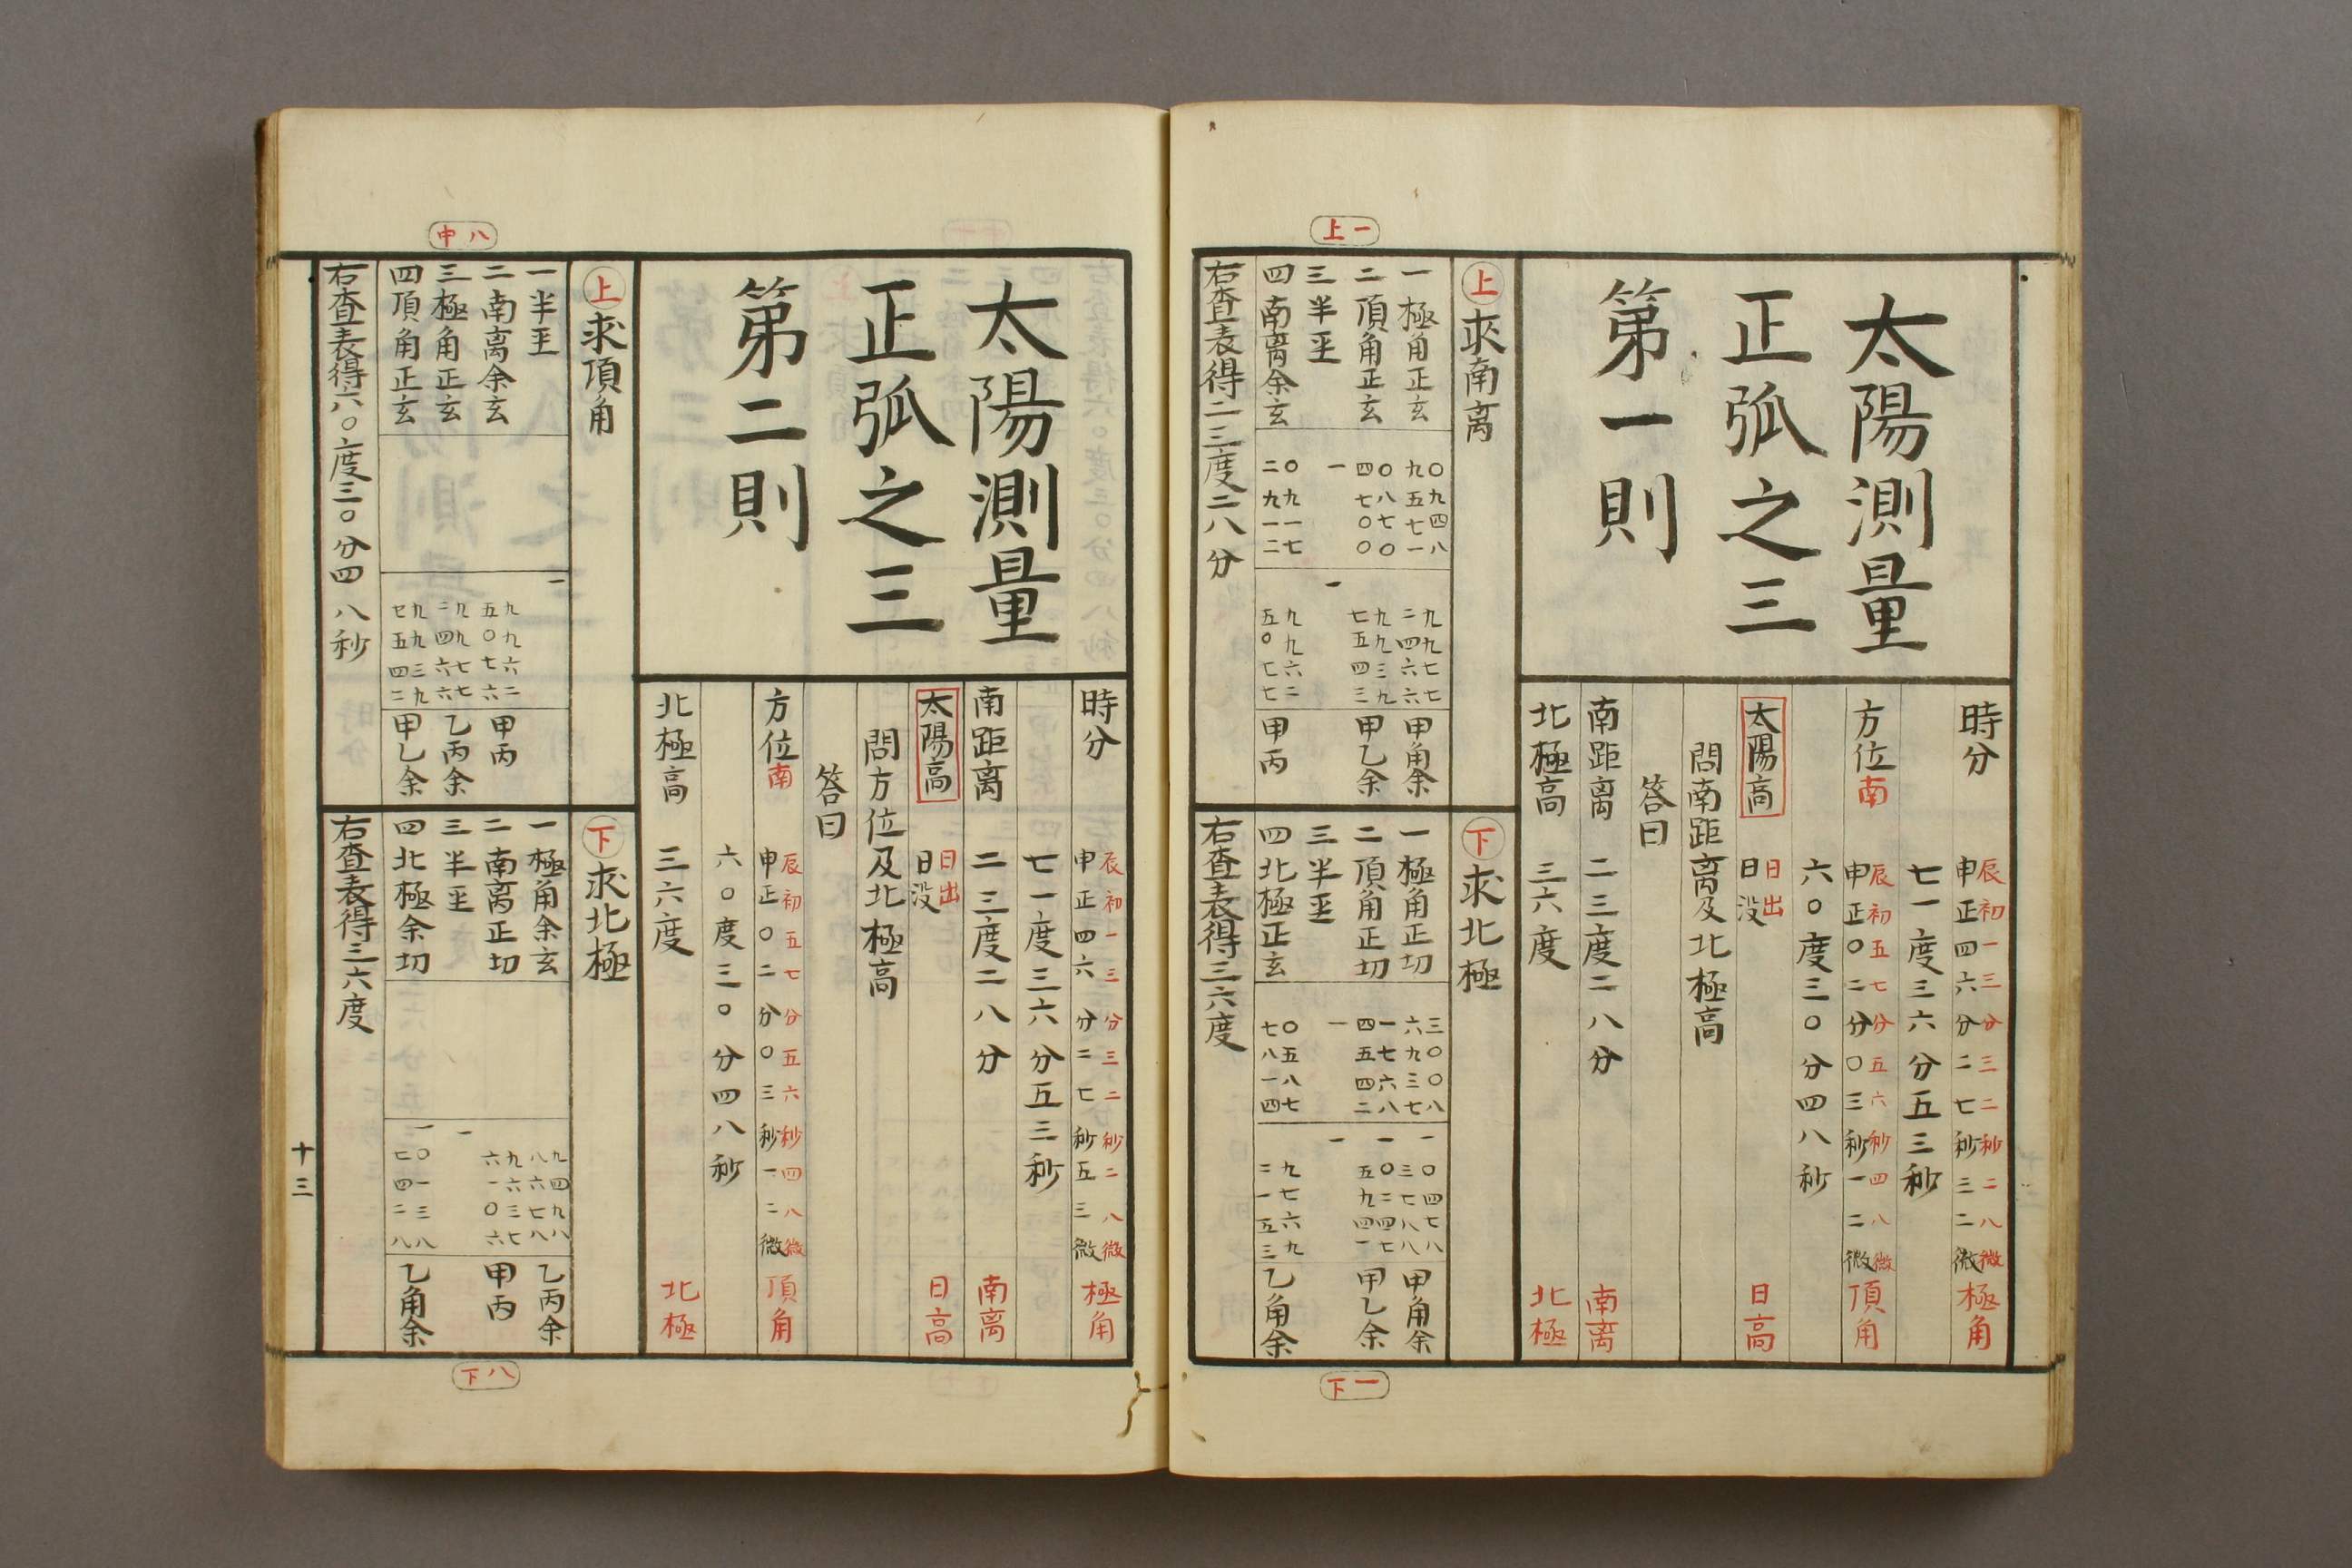 一上
太陽測量
正弧之三
第一則
時分 辰初一三分三二秒二八微 申正四六分二七秒三二微 極角
七一度三六分五三秒
方位南 辰初五七分五六秒四八微 申正〇二分〇三秒一二微 頂角
六〇度三〇分四八秒
太陽高 日出 日没 日高
問南距離及北極高
答曰
南距离 二三度二八分 南离
北極高 三六度 北極
上 求南离
一極角正玄 〇九四八九五七一 九九七七二四六六 甲角余
二頂角正玄 〇八七〇四七〇〇 九九三九七五四三 甲乙余
三半𡈼 一 一
四南离余玄 〇九一七二九一二 九九六二五〇七七 甲丙
右查表得二三度二八分
下 求北極
一極角正切 三〇〇八六九三七 一〇四七八三七八八 甲角余
二頂角正切 一七六八四五四二 一〇二四七五九四一 甲乙余
三半𡈼 一 一
四北極正玄 〇五八七七八一四 九七六九二一五三 乙角余
右查表得三六度
一下
八中
太陽測量
正弧之三
第二則
時分 辰初一三分三二秒二八微 申正四六分二七秒五三微 極角
七一度三六分五三秒
南距离 二三度二八分 南离
太陽高 日出 日没 日高
問方位及北極高
答曰
方位南 辰初五七分五六秒四八微 申正〇二分〇三秒一二微 頂角
六〇度三〇分四八秒
北極高 三六度 北極
上 求頂角
一半𡈼 一
二南离余玄 九九六二五〇七六 甲丙
三極角正玄 九九七七二四六六 乙丙余
四頂角正玄 九九三九七五四二 甲乙余
右查表得六〇度三〇分四八秒
下 求北極
一極角余玄 九四九八八六七八 乙丙余
二南离正切 九六三七六一〇六 甲丙
三半𡈼 一
四北極余切 一〇一三八七四二八 乙角余
右查表得三六度
十三
八下